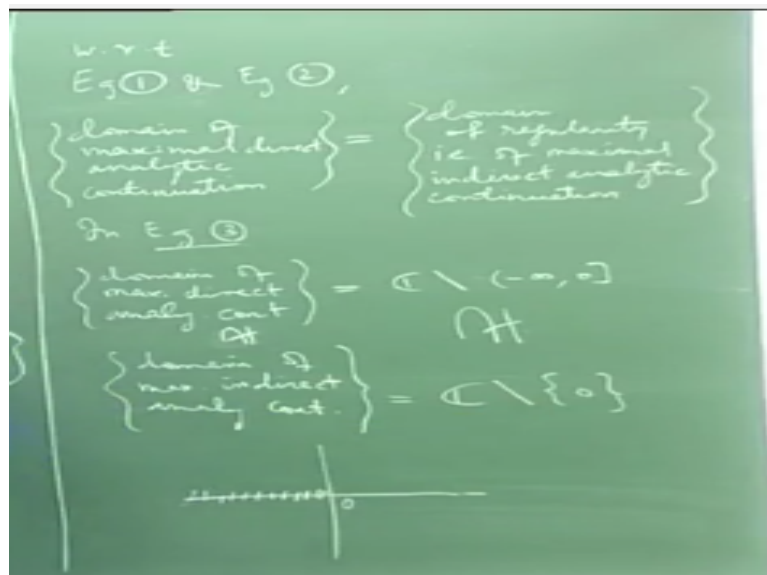 w.r.t
Eg ① & Eg ②,
{domain of maximal direct analytic continuation} = {domain of regularity, ie of maximal indirect analytic continuation}
In Eg ③
{domain of max. direct analy. cont} = ℂ \ (-∞, 0]
⊊ ⊊
{domain of max. indirect analy cont.} = ℂ \ {0}
0